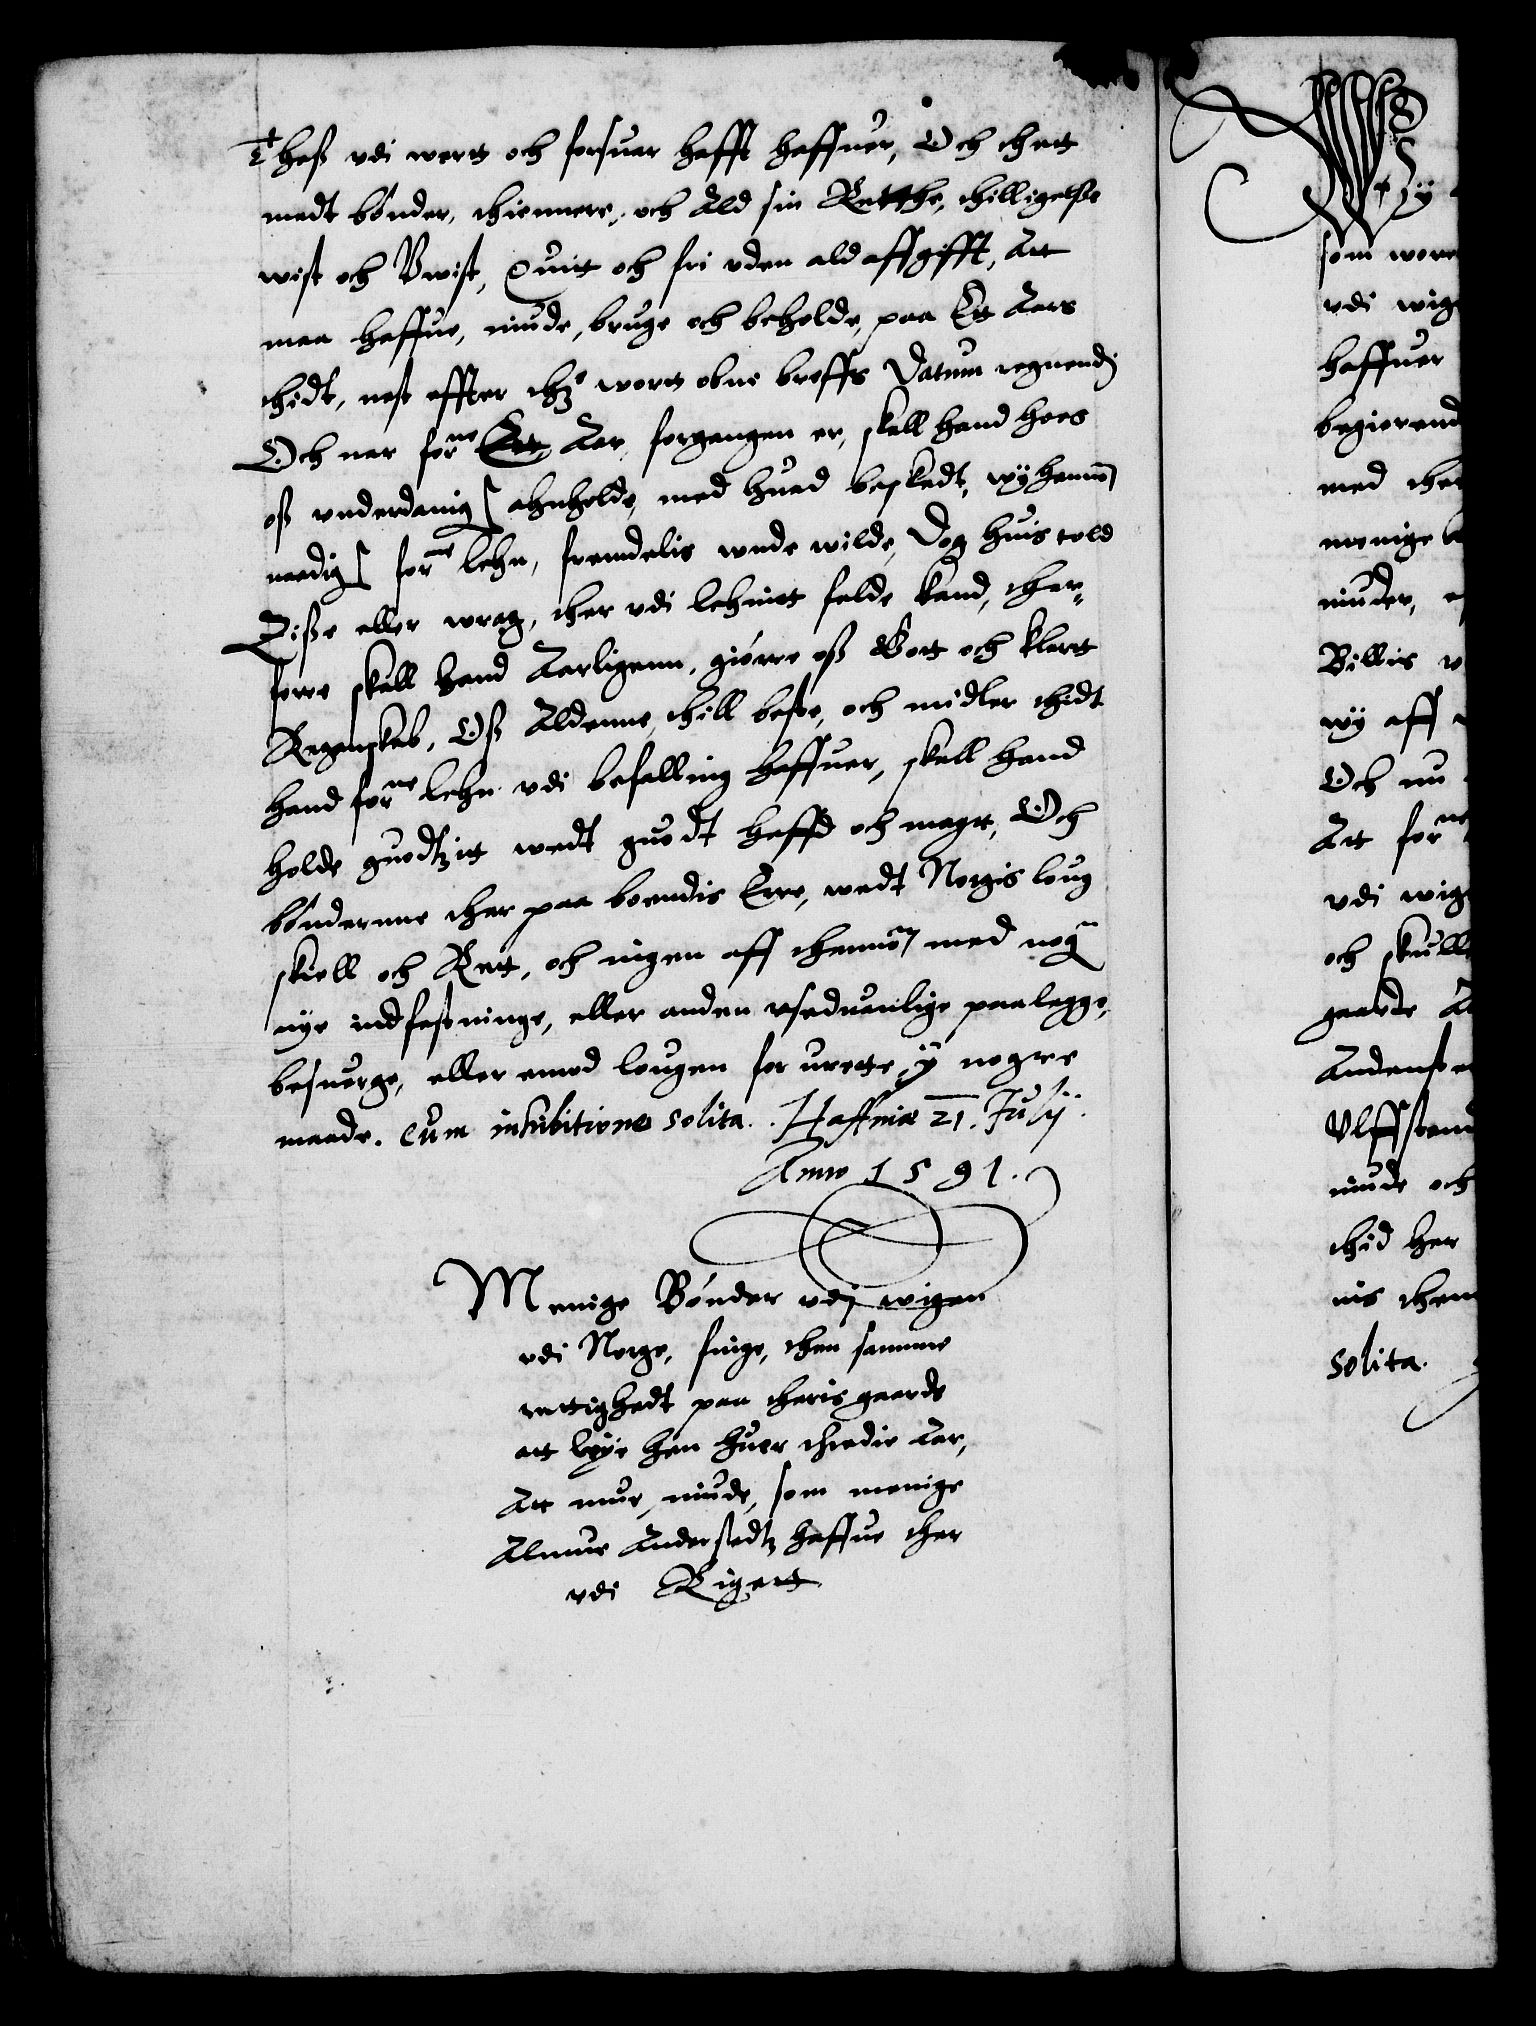 Thess vdi wortt och forsuar hafft haffuer, Och thett
medt bønder, thiennere, och Ald sin Retthe, thilligelsse
wist och Vwist, Quit och fri vden ald affgifft, Att
maa haffue, niude, bruge och beholde, paa Ett Aars
thidt, nest effter thz. wortt obne breffs Datum regnendj
Och nar forne Ett Aar, forgangen er, skall hand hoes
oss vnderdanigs ahnholde, med huad beskedt, wij hannom
naadigs forne lehn, fremdelis wnde wilde, Dog huis told
Zisse eller wrag, ther vdi lehnitt falde kand, ther
fore skall hand Aarligenn, giørre oss Gott och klart
Regenskab, Oss Aldenne, thill beste, och midler thidt
hand forne lehn vdi befalling haffuer, skall hand
holde guodtzitt wedt guodt heffd och magt, Och
bønderne ther paa boendis Erre, wedt Norgis loug
skiell och Rett, och ingen aff thennom med nogn
nye indfestninge, eller anden vseduanlige paalegge,
besuerge, eller emod lougen for vrette, ÿ nogre
maade. Cum inhibitione solita. Haffniæ 21. Julij.
Anno 1591.
Menige Bønder vdj wigen
vdi Norge, finge, then samme
rettighedt paa theris gaarde
att bøye hen huer thredie Aar,
Att mue, niude, som menige
Almue Anderstedtz haffue ther
vdi Rigett
Wij
som wore
vdi wig
haffuer
begierend
med the
menige
niuder,
Billis
wij aff
Och nu
Att forne
vdi wig
och skulle
gaarde
Andenst
Vlffstand
niude och
thid her
nis them
solita.